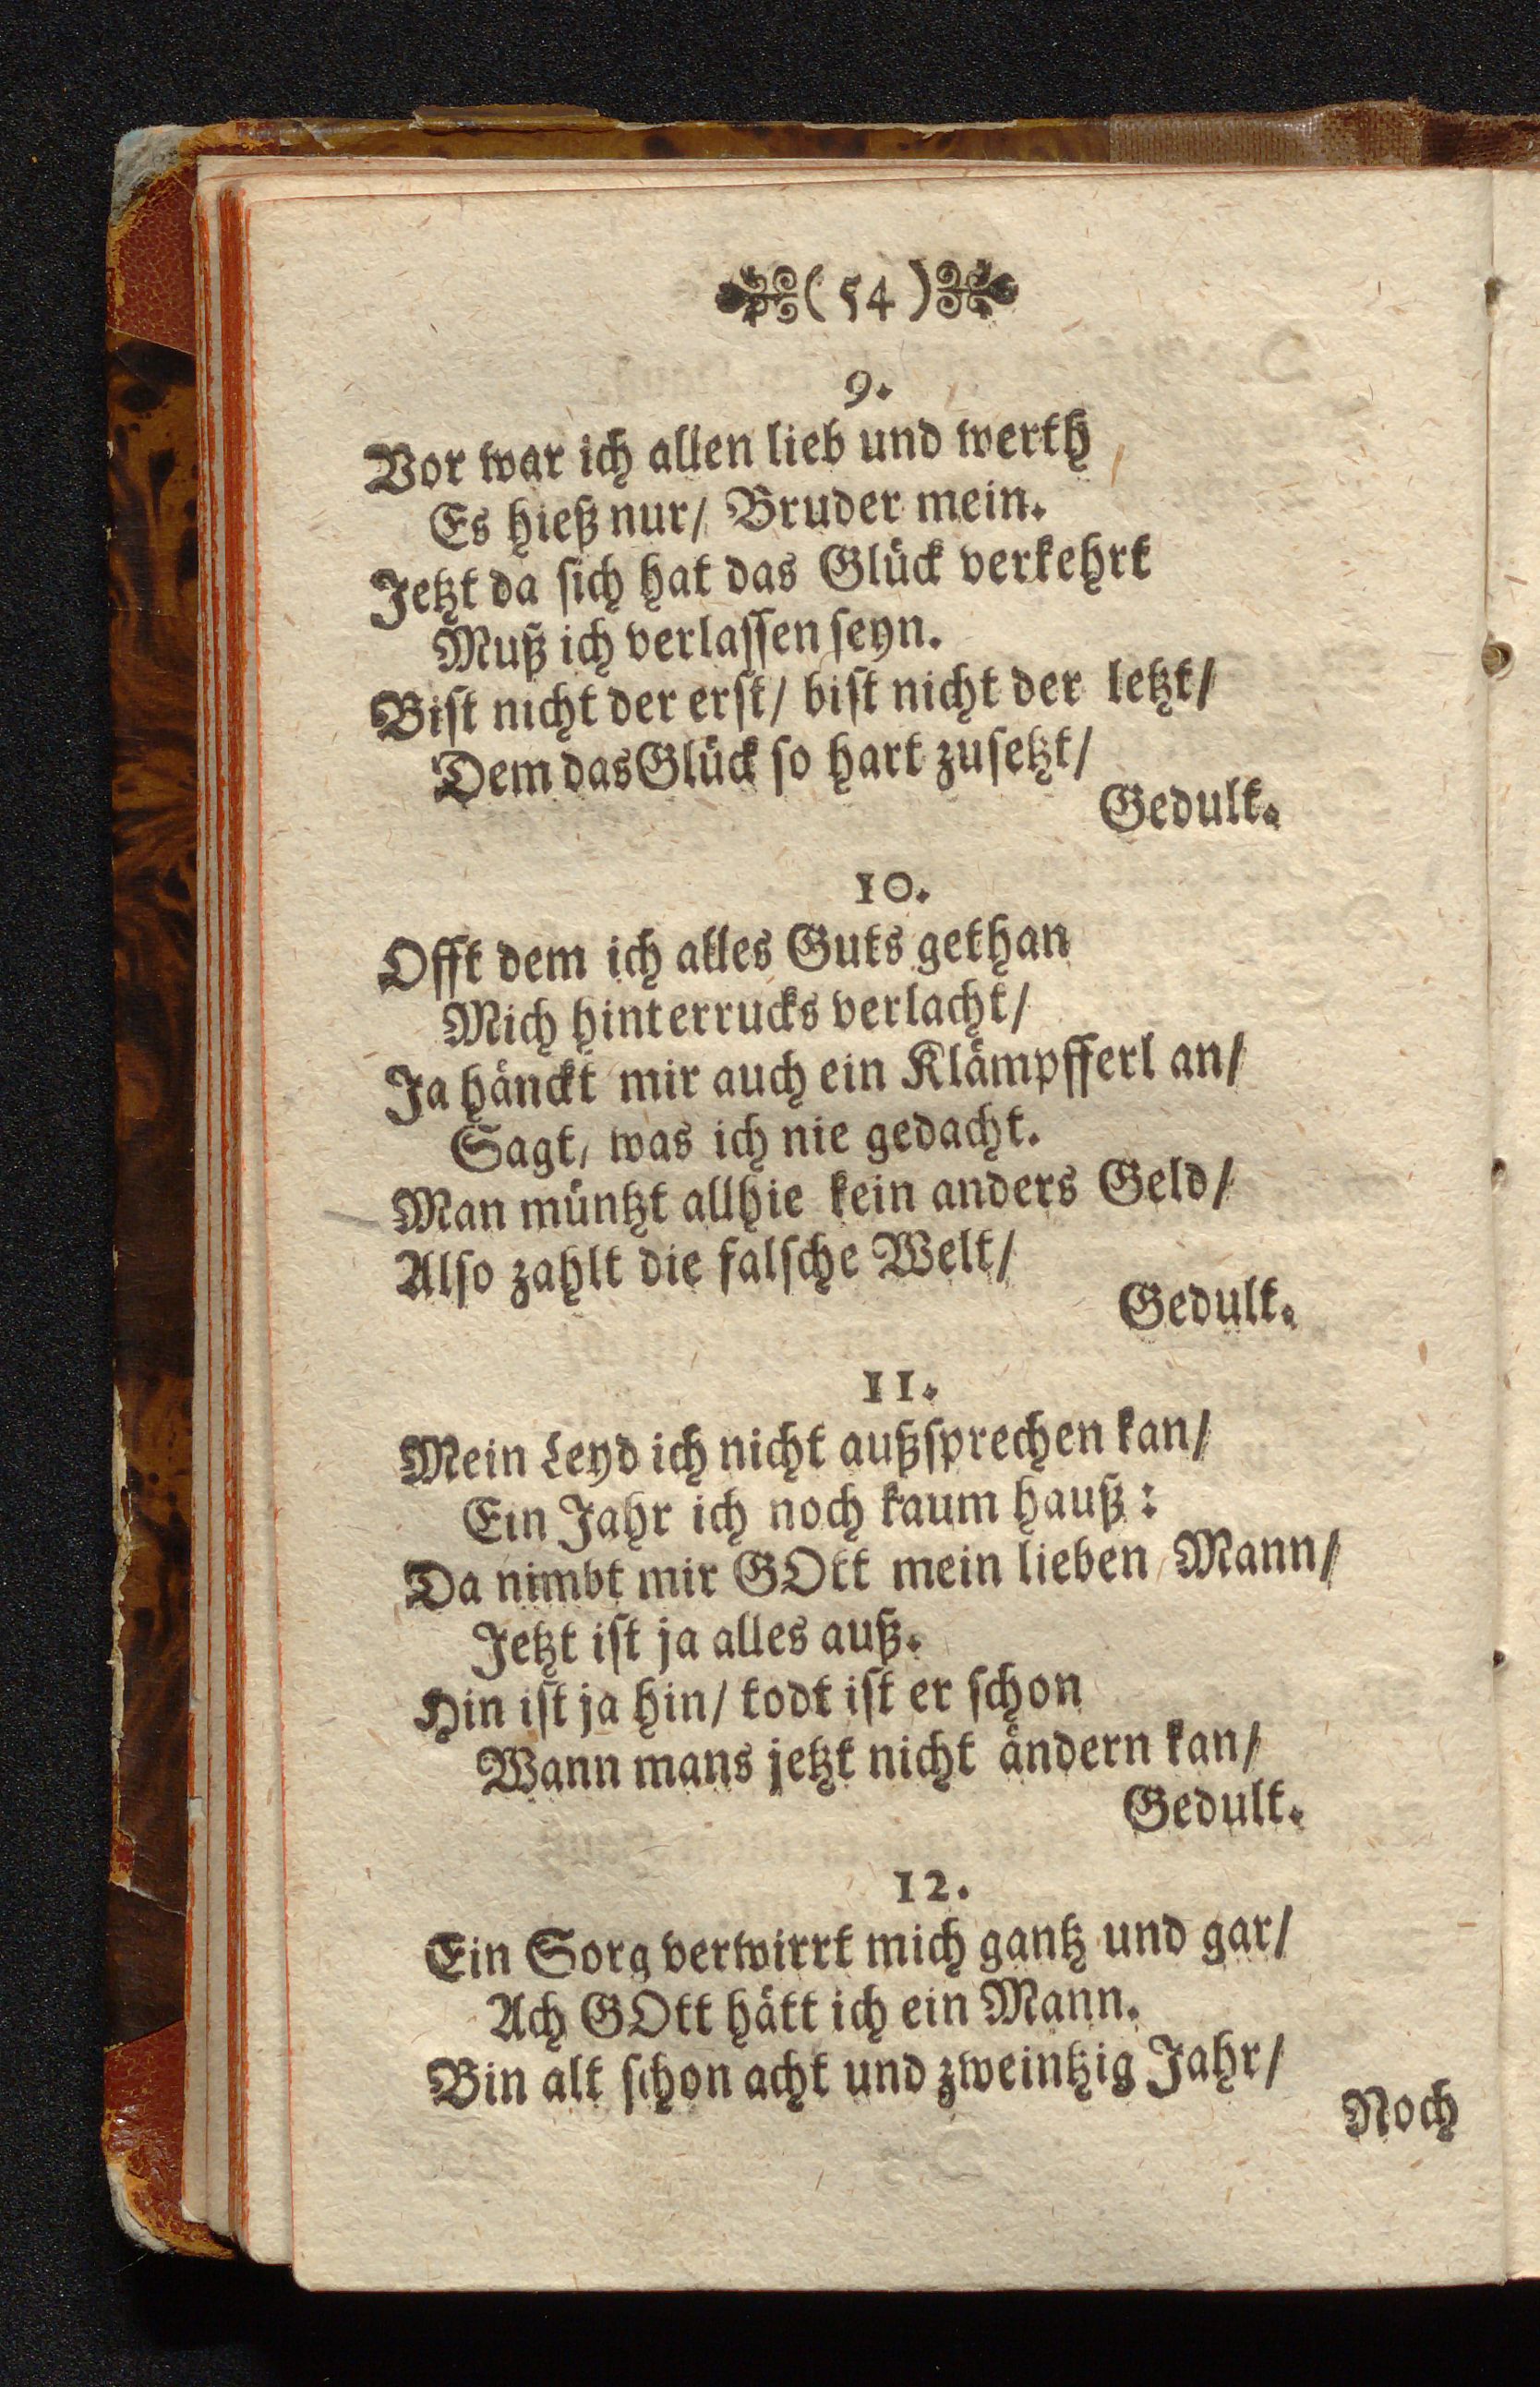 ( 54 )
9.
Vor war ich allen lieb und werth
Es hieß nur/ Bruder mein.
Jetzt da sich hat das Glück verkehrt
Muß ich verlassen seyn.
Bist nicht der erst/ bist nicht der letzt/
Dem das Glück so hart zusetzt/
Gedult.
10.
Offt dem ich alles Guts gethan
Mich hinterrucks verlacht/
Ja hänckt mir auch ein Klämpfferl an/
Sagt, was ich nie gedacht.
Man müntzt allhie kein anders Geld/
Also zahlt die falsche Welt/
Gedult.
11.
Mein Leyd ich nicht außsprechen kan/
Ein Jahr ich noch kaum hauß:
Da nimbt mir GOtt mein lieben Mann/
Jetzt ist ja alles auß.
Hin ist ja hin/ todt ist er schon
Wann mans jetzt nicht ändern kan/
Gedult.
12.
Ein Sorg verwirrt mich gantz und gar/
Ach GOtt hätt ich ein Mann.
Bin alt schon acht und zweintzig Jahr/
Noch